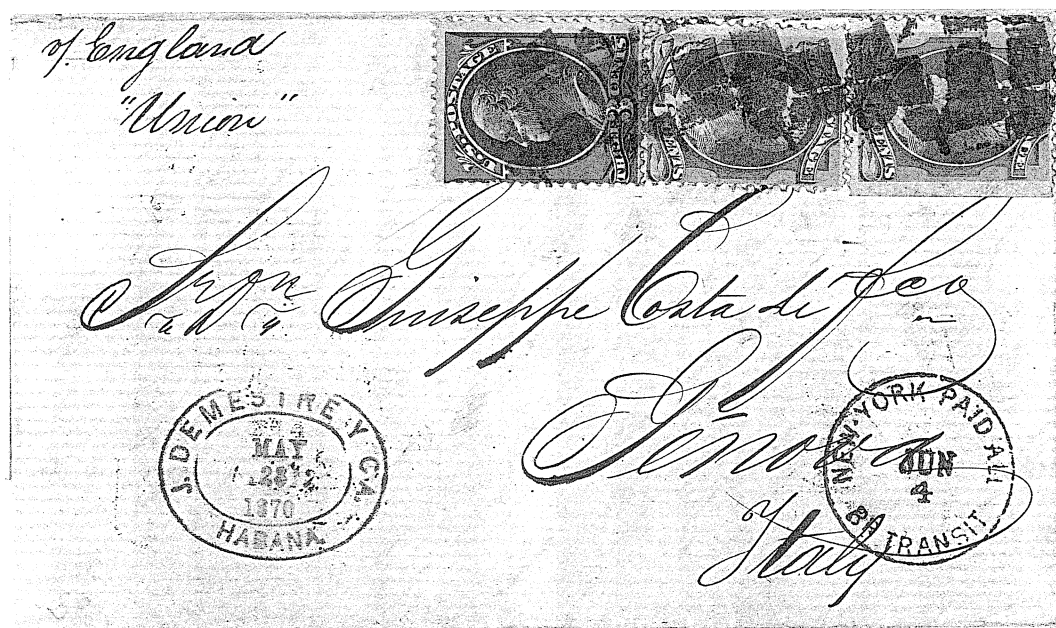 v/. England
"Union"
Giuseppe Costa di Geo
Génova
Italy
J. DEMESTRE Y CA.
MAY
28
1870
HABANA
NEW YORK PAID ALL
JUN
4
BR TRANSIT